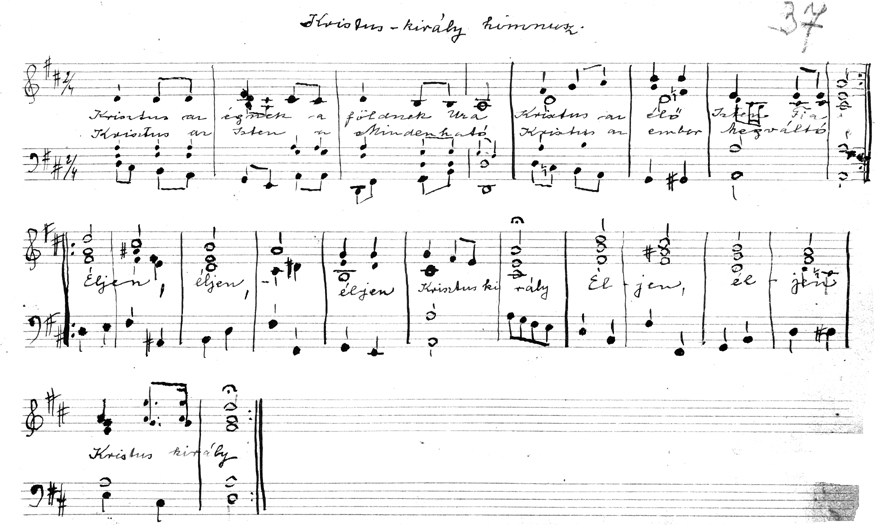 Kristus-király himnusz.
37
2/4
Krisztus az égnek a földnek Ura Krisztus az élő Isten Fia
Krisztus az Isten a Mindenható Krisztus az ember Megváltó
2/4
Éljen, éljen, éljen Krisztus király Él-jen, él-jen
Kristus király